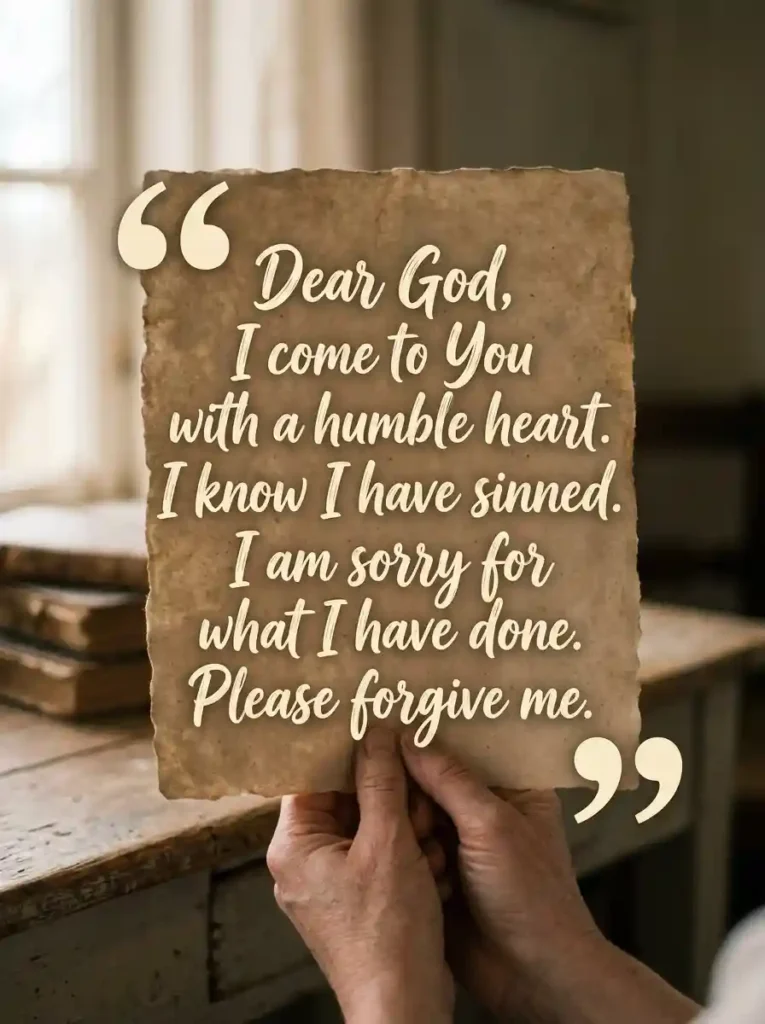 “Dear God,
I come to You
with a humble heart.
I know I have sinned.
I am sorry for
what I have done.
Please forgive me.”